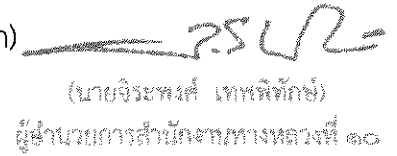 (นายจิระพงศ์ เทพพิทักษ์)
ผู้อำนวยการสำนักงานทางหลวงที่ ๑๐